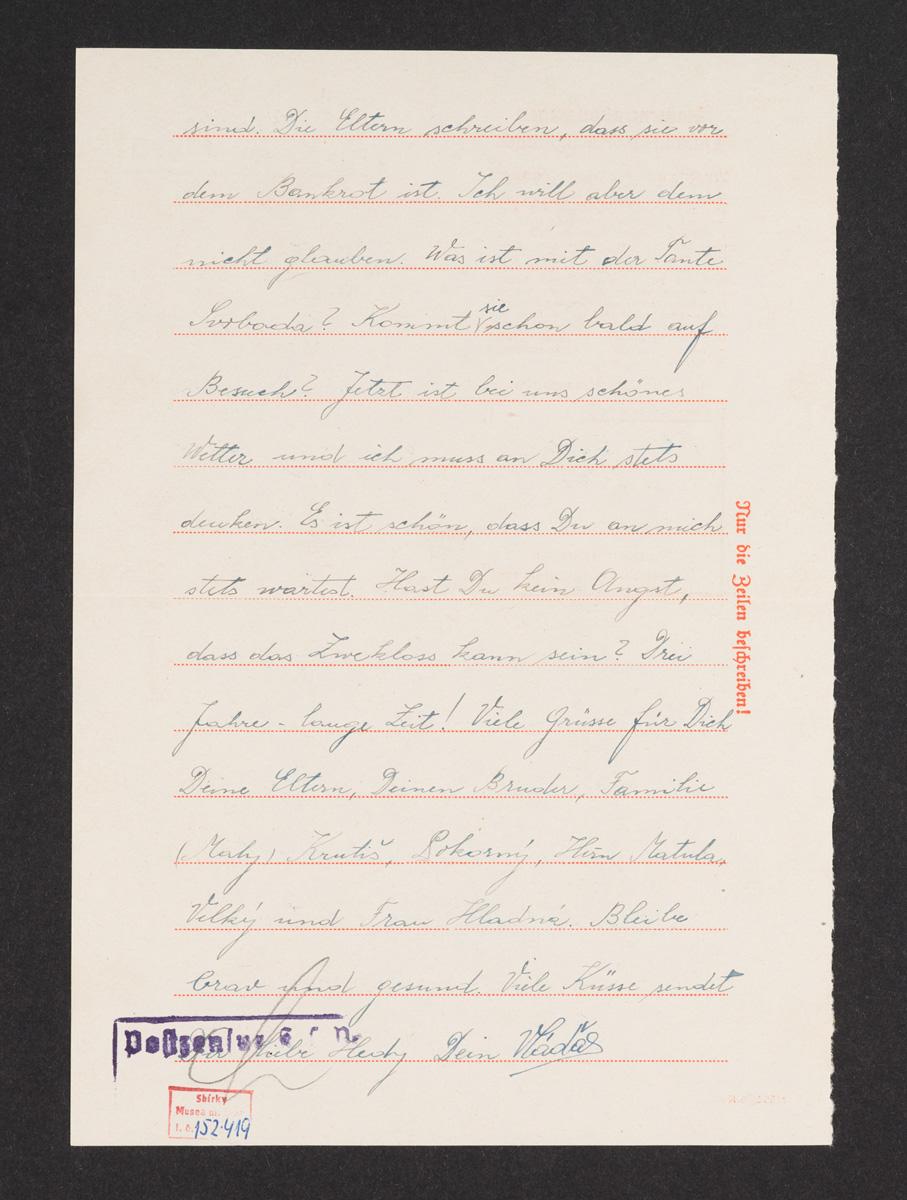 sind. Die Eltern schreiben, dass sie vor
dem Bankrot ist. Ich will aber dem
nicht glauben. Was ist mit der Tante
Svoboda? Kommt sie schon bald auf
Besuch? Jetzt ist bei uns schönes
Wetter und ich muss an Dich stets
denken. Es ist schön, dass Du an mich
stets wartest. Hast Du kein Angst,
dass das Zwekloss kann sein? Drei
Jahre - lange Zeit! Viele Grüsse für Dich
Deine Eltern, Deinen Bruder, Familie
(Maly) Krutiš, Pokorný, Hrn Matula,
Velký und Frau Hladná. Bleibe
brav und gesund. Viele Küsse sendet
liebe Hedy Dein Vláďa
Nur die Zeilen beschreiben!
Postzensur
Sbírky
Musea
152.419